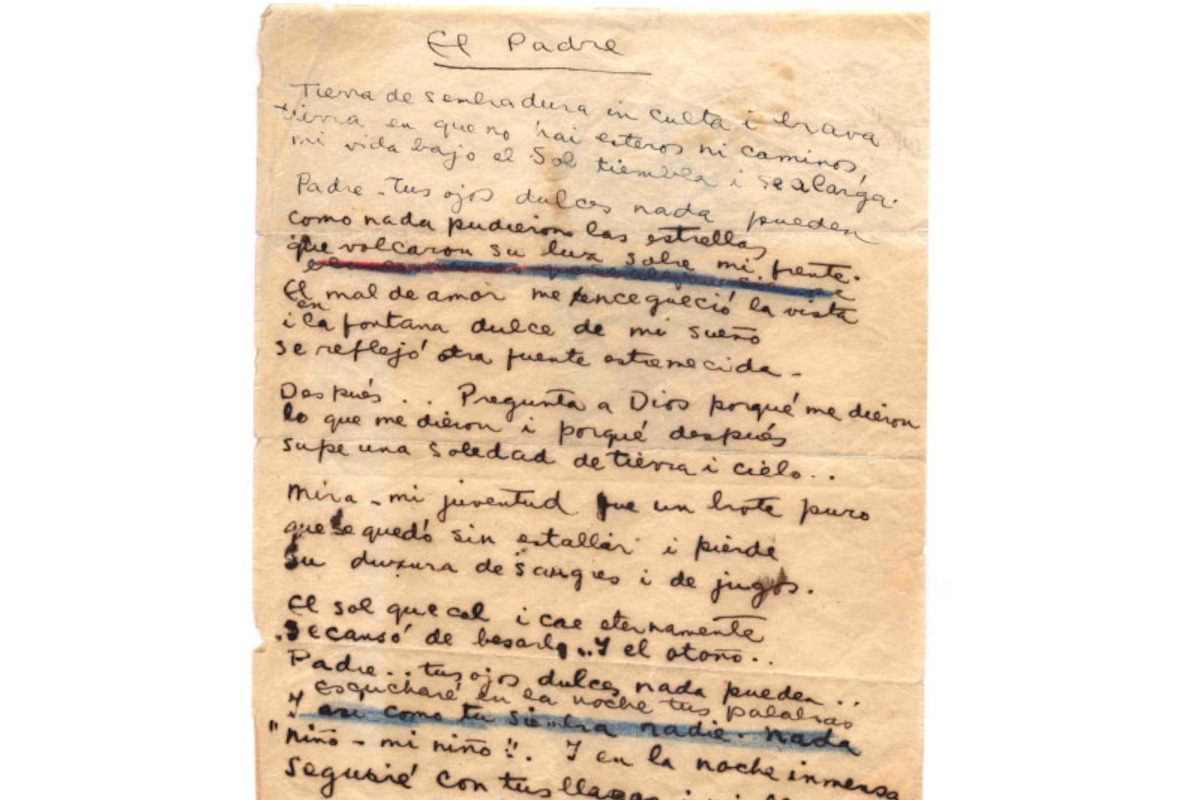 El Padre
Tierra de sembradura inculta i brava
tierra en que no hai esteros ni caminos,
mi vida bajo el Sol tiembla i se alarga.
Padre - tus ojos dulces nada pueden
como nada pudieron las estrellas
que volcaron su luz sobre mi frente.
El mal de amor me encegueció la vista
i en la fontana dulce de mi sueño
se reflejó otra fuente estremecida -
Después . . Pregunta a Dios porqué me dieron
lo que me dieron i porqué después
supe una soledad de tierra i cielo . .
Mira - mi juventud fue un brote puro
que se quedó sin estallar i pierde
su dulzura de sangres i de jugos.
El sol que cae i cae eternamente
se cansó de besarla .. Y el otoño . .
Padre . . tus ojos dulces nada pueden . .
escucharé en la noche tus palabras
Y así como tu siembra nadie. Nada
"niño - mi niño!!. Y en la noche inmensa
seguiré con tus llagas i